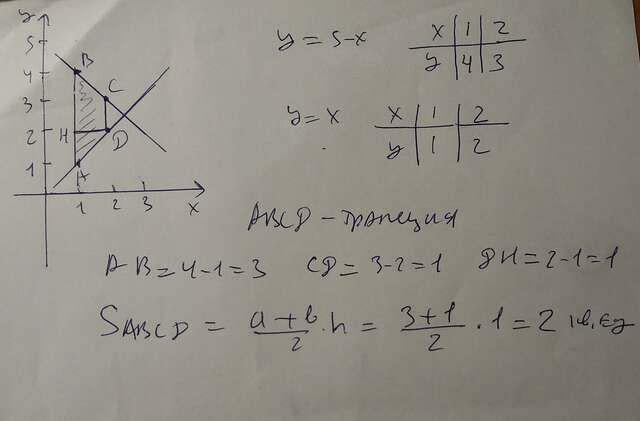 y
5
4
3
2
1
B
C
H
D
A
1 2 3
x
y = 5-x
x 1 2
y 4 3
y = x
x 1 2
y 1 2
ABCD - трапеция
AB=4-1=3 CD=3-2=1 DH=2-1=1
SABCD = a+b/2 · h = 3+1/2 · 1 = 2 кв.ед